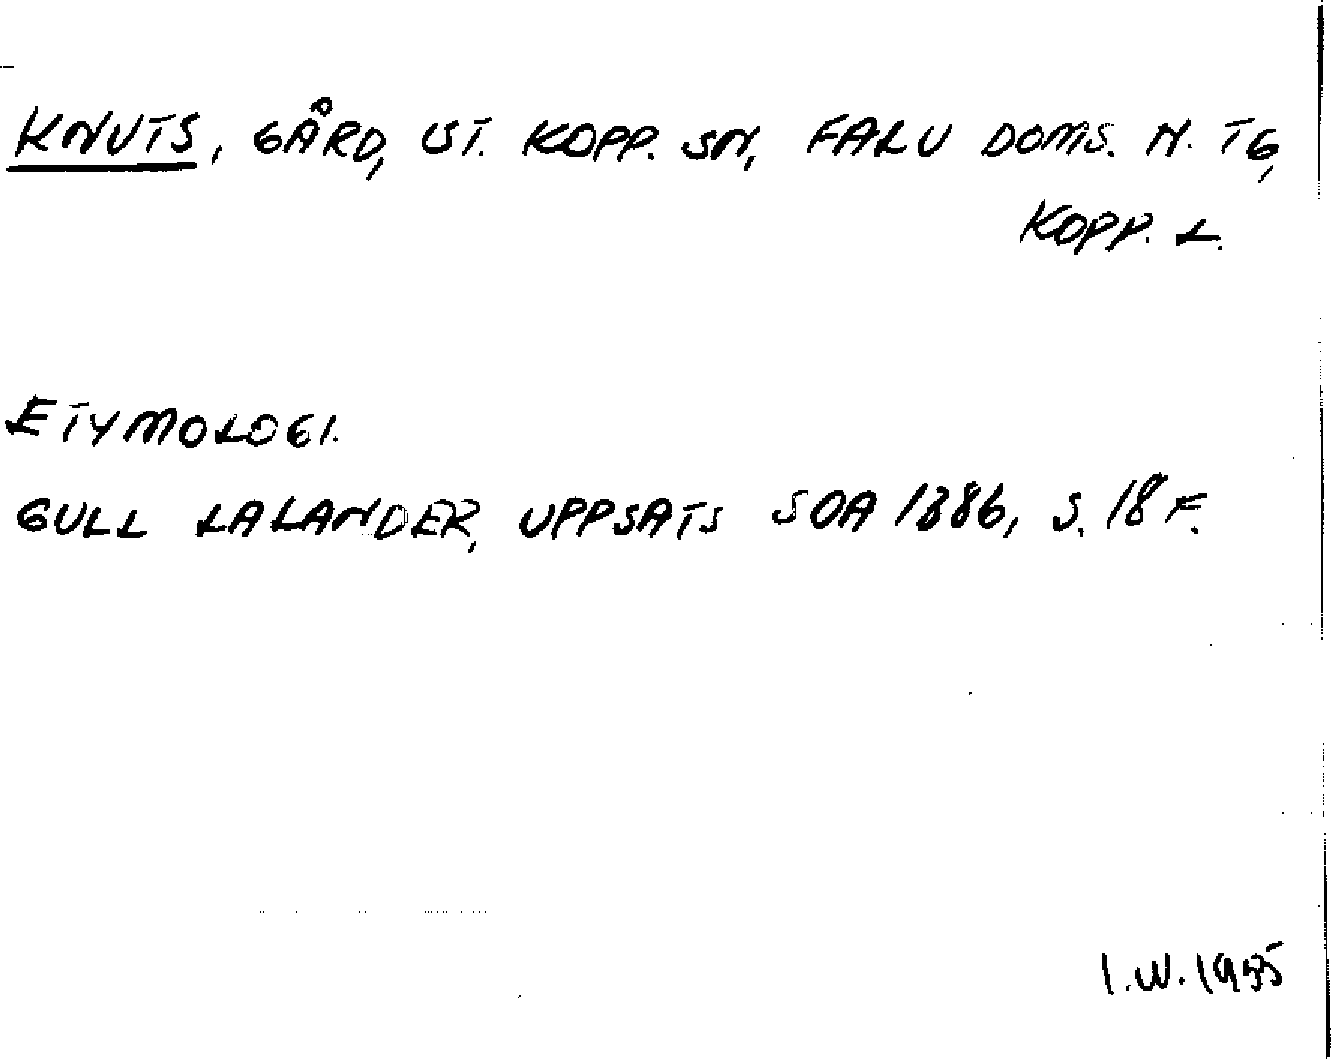 KNUTS, GÅRD, ST. KOPP. SN, FALU DOMS. N. TG,
KOPP. L.
ETYMOLOGI.
GULL LALANDER, UPPSATS SOA 1886, S. 18 F.
I.W. 1955